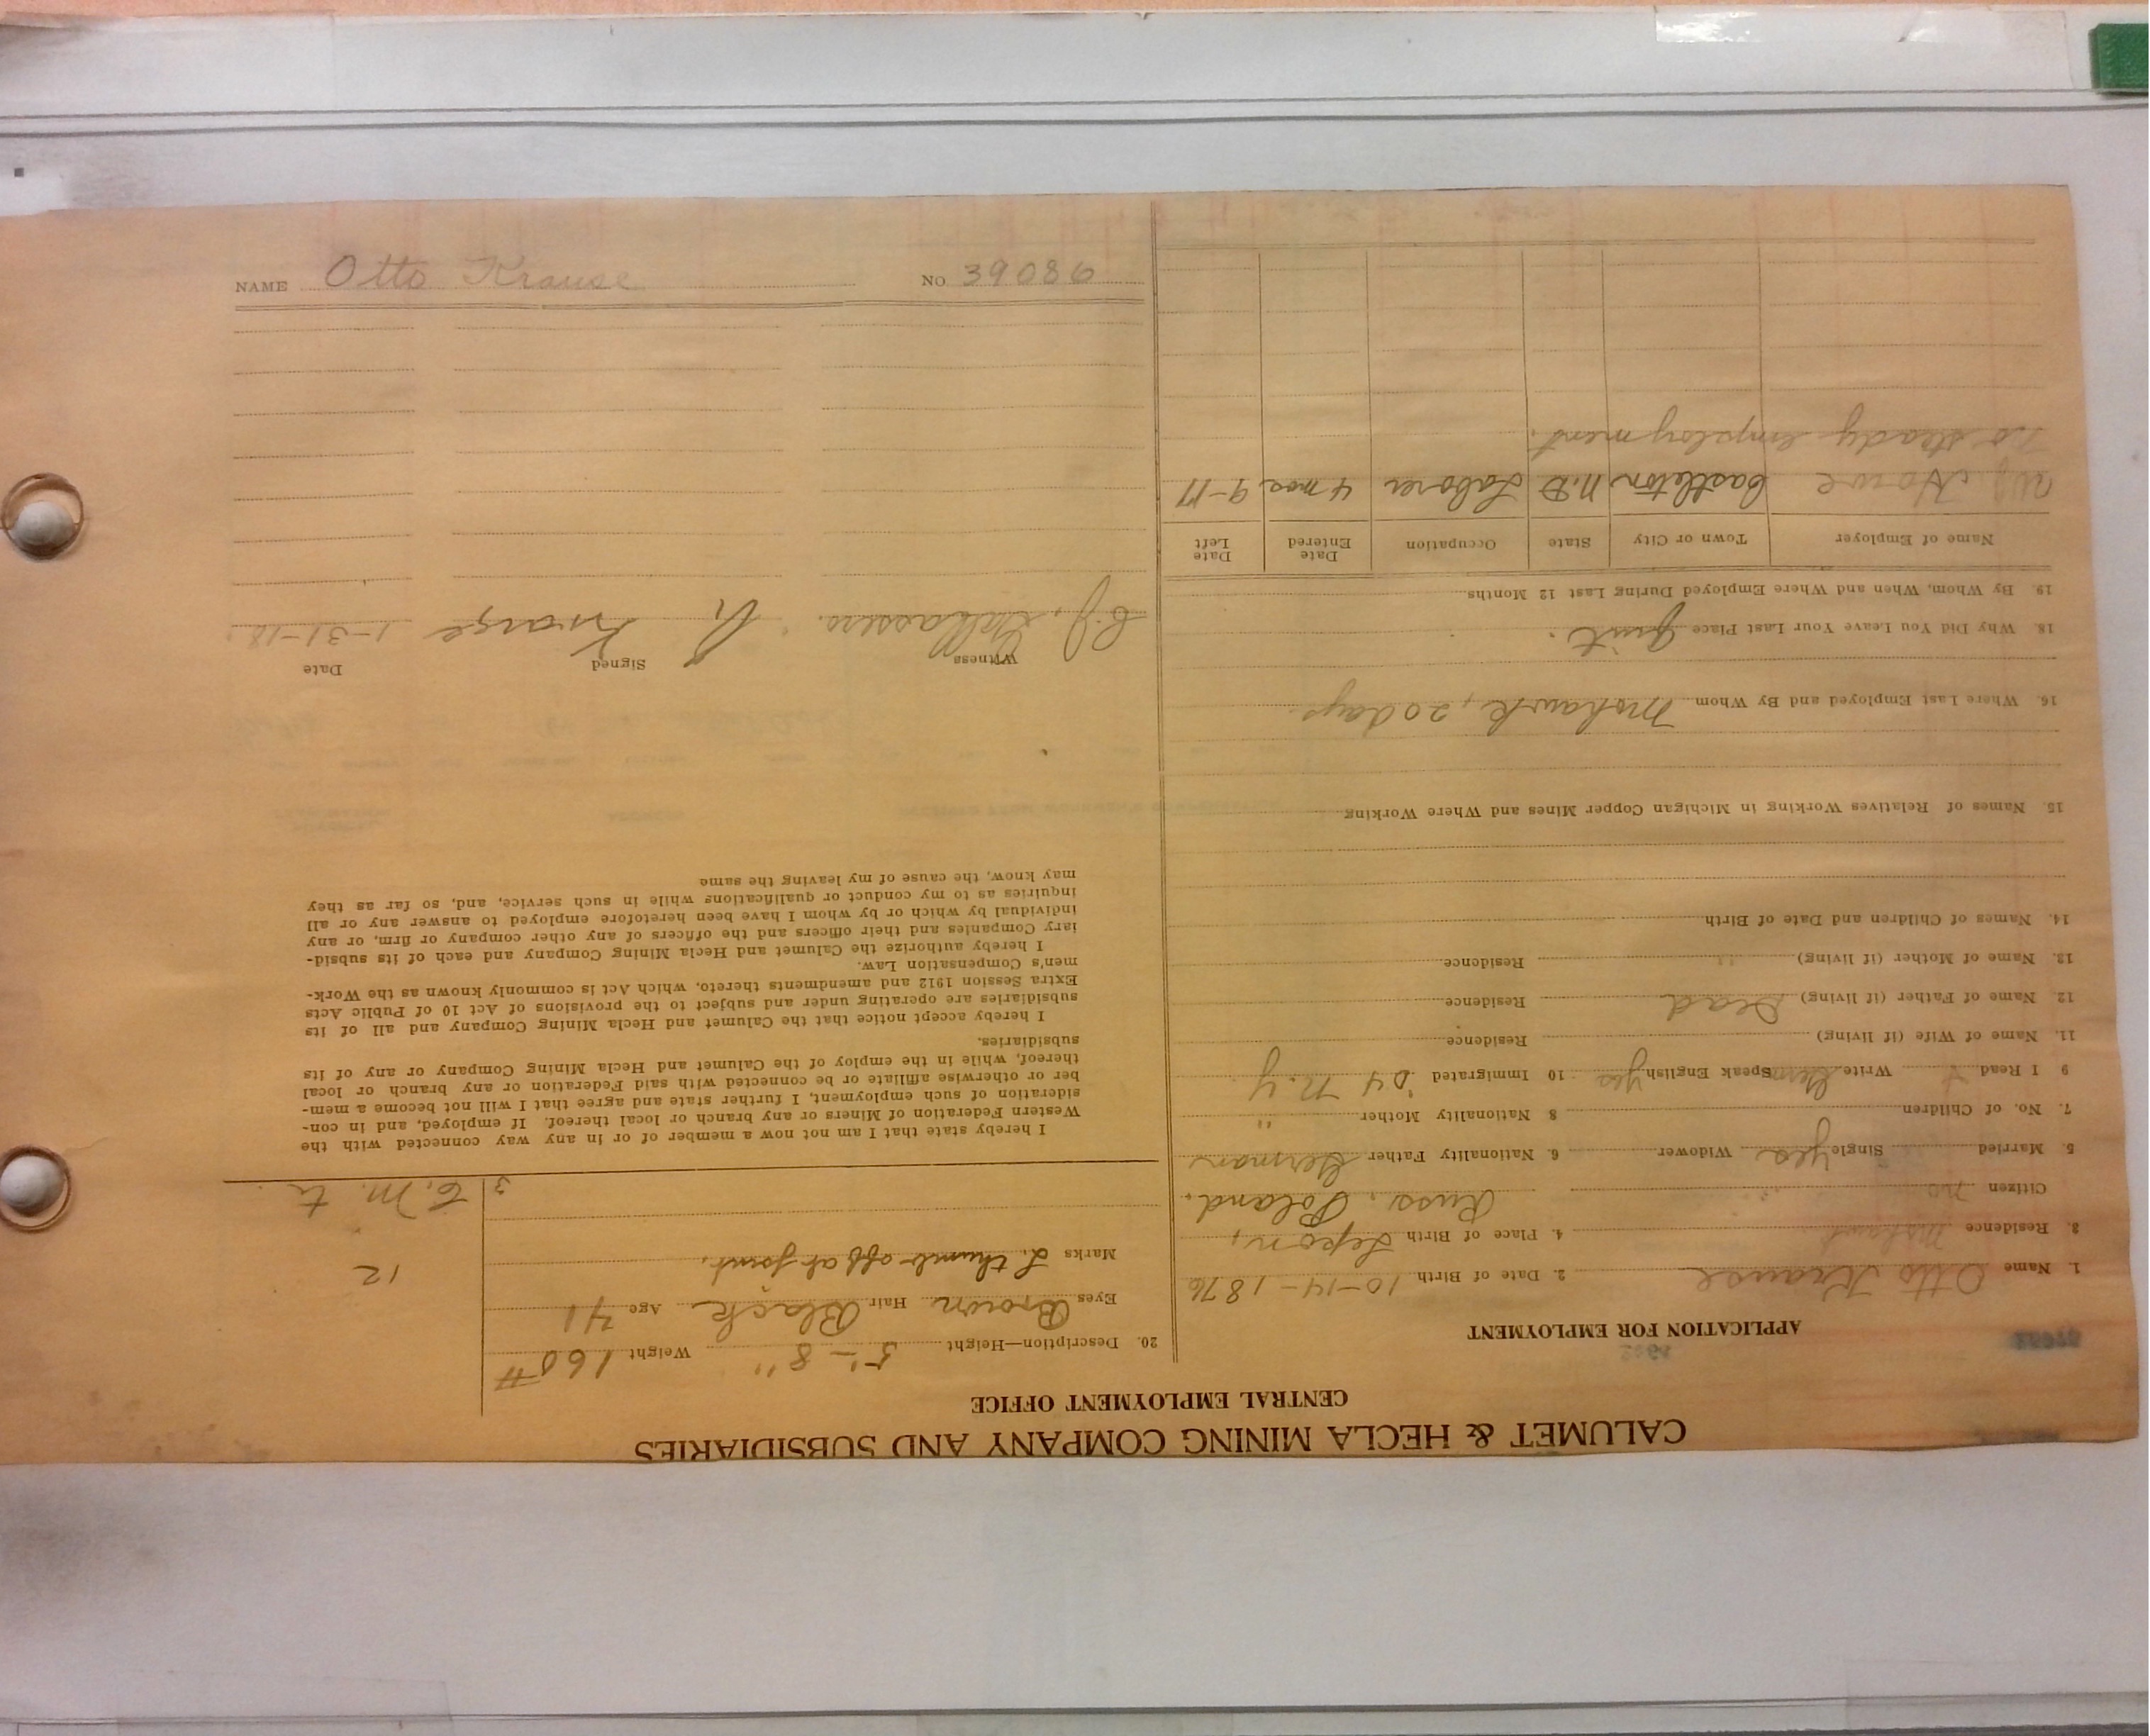 CALUMET & HECLA MINING COMPANY AND SUBSIDIARIES
CENTRAL EMPLOYMENT OFFICE
APPLICATION FOR EMPLOYMENT
1. Name Otto Krause 2. Date of Birth 10-14-1876
3. Residence Mohawk 4. Place of Birth
Citizen no Russ. Poland.
5. Married Single yes Widower 6. Nationality Father German
7. No. of Children 8 Nationality Mother "
9 I Read Write Speak English yes 10 Immigrated '04 N.Y
11. Name of Wife (if living) Residence
12 Name of Father (if living) Dead Residence
13. Name of Mother (if living) " Residence
14. Names of Children and Date of Birth
15. Names of Relatives Working in Michigan Copper Mines and Where Working
16. Where Last Employed and By Whom Mohawk, 20 days.
18. Why Did You Leave Your Last Place Quit.
19. By Whom, When and Where Employed During Last 12 Months
Name of Employer Town or City State Occupation Date Entered Date Left
Howe Castleton N.D Laborer 4 mos. 9-17
no steady employment.
20. Description—Height 5'-8" Weight 160#
Eyes Brown Hair Black Age 41
Marks L thumb off at joint.
12
I hereby state that I am not now a member of or in any way connected with the
Western Federation of Miners or any branch or local thereof. If employed, and in con-
sideration of such employment, I further state and agree that I will not become a mem-
ber or otherwise affiliate or be connected with said Federation or any branch or local
thereof, while in the employ of the Calumet and Hecla Mining Company or any of its
subsidiaries.
I hereby accept notice that the Calumet and Hecla Mining Company and all of its
subsidiaries are operating under and subject to the provisions of Act 10 of Public Acts
Extra Session 1912 and amendments thereto, which Act is commonly known as the Work-
men's Compensation Law.
I hereby authorize the Calumet and Hecla Mining Company and each of its subsid-
iary Companies and their officers and the officers of any other company or firm, or any
individual by which or by whom I have been heretofore employed to answer any or all
inquiries as to my conduct or qualifications while in such service, and, so far as they
may know, the cause of my leaving the same
Witness Signed Date
C.J. Krause 1-31-18.
NAME Otto Krause NO 39086